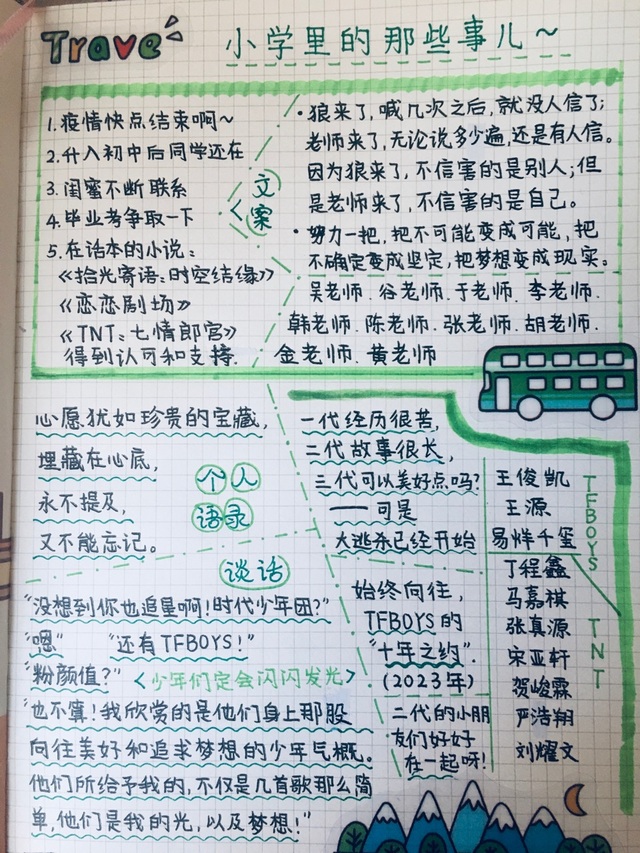 Trave
小学里的那些事儿～
1.疫情快点结束啊～
2.升入初中后同学还在
3.闺蜜不断联系
4.毕业考争取一下
5.在话本的小说：
《拾光寄语：时空结缘》
《恋恋剧场》
《TNT：七情郎宫》
得到认可和支持.
文
案
·狼来了,喊几次之后,就没人信了;
老师来了,无论说多少遍,还是有人信。
因为狼来了,不信害的是别人;但
是老师来了,不信害的是自己。
·努力一把,把不可能变成可能,把
不确定变成坚定,把梦想变成现实。
吴老师.谷老师.于老师.李老师.
韩老师.陈老师.张老师.胡老师.
金老师.黄老师
心愿犹如珍贵的宝藏,
埋藏在心底,
永不提及,
又不能忘记。
个人
语录
一代经历很苦,
二代故事很长,
三代可以美好点吗?
——可是
大逃杀已经开始
王俊凯
王源
易烊千玺
TFBOYS
丁程鑫
马嘉祺
张真源
宋亚轩
贺峻霖
严浩翔
刘耀文
TNT
谈话
"没想到你也追星啊!时代少年团?"
"嗯" "还有TFBOYS!"
"粉颜值?" <少年们定会闪闪发光>
"也不算!我欣赏的是他们身上那股
向往美好和追求梦想的少年气概。
他们所给予我的,不仅是几首歌那么简
单,他们是我的光,以及梦想!"
始终向往,
TFBOYS的
"十年之约".
(2023年)
二代的小朋
友们好好
在一起呀!